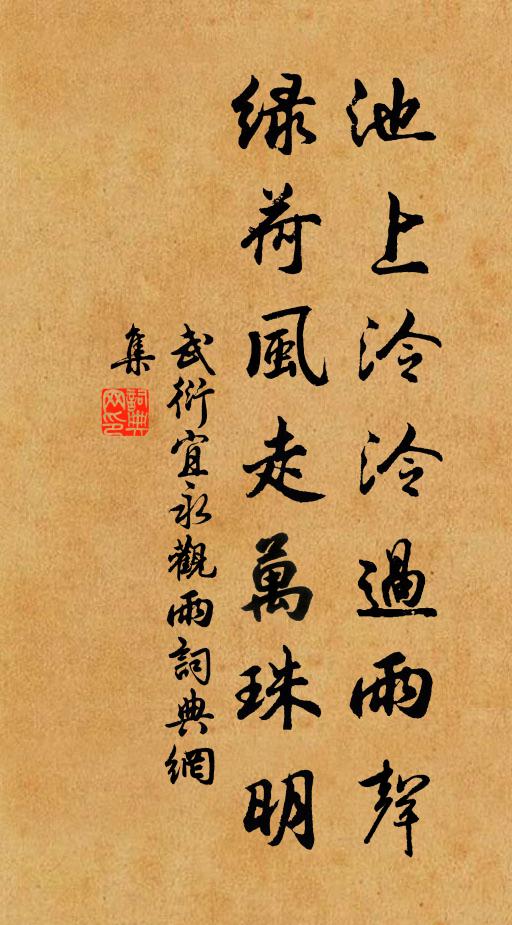 池上泠泠過雨聲
綠荷風走萬珠明
武衍宜永觀雨詞典網
集
詞典
网印